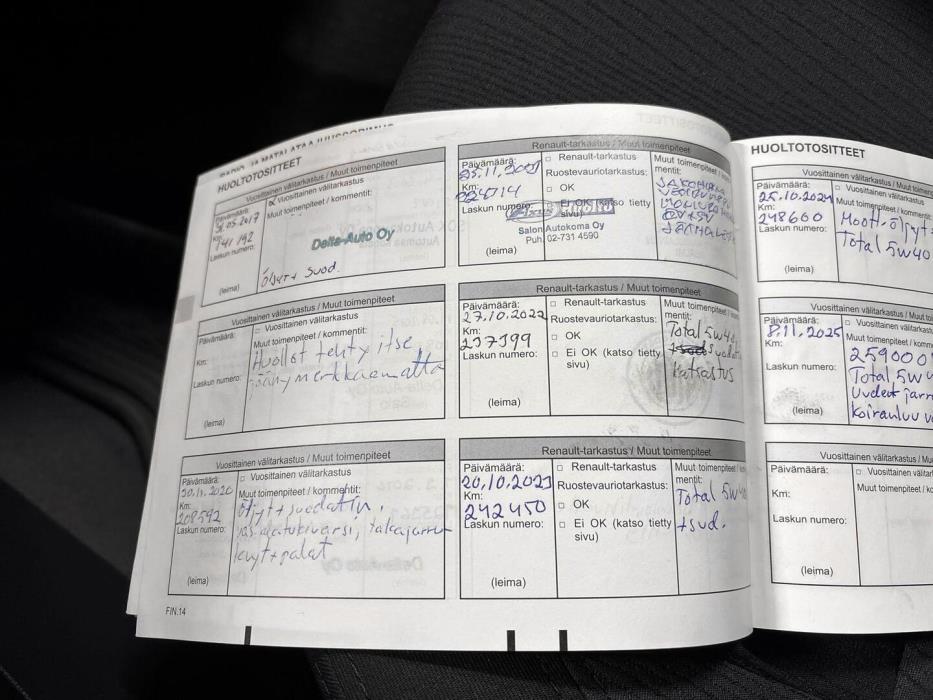 HUOLTOTOSITTEET
Vuosittainen välitarkastus / Muut toimenpiteet
Päivämäärä:
Vuosittainen välitarkastus
.05.2017
Muut toimenpiteet / kommentit:
Km:
141192
Laskun numero:
Delta-Auto Oy
(leima)
Öljyt + suod.
Vuosittainen välitarkastus / Muut toimenpiteet
Päivämäärä:
Vuosittainen välitarkastus
Muut toimenpiteet / kommentit:
Km:
Huollot tehty itse
Laskun numero:
jäänyt merkkaamatta
(leima)
Vuosittainen välitarkastus / Muut toimenpiteet
Päivämäärä:
Vuosittainen välitarkastus
30.11.2020
Muut toimenpiteet / kommentit:
Km:
208592
öljyt + suodatin,
Laskun numero:
takajarrun
levyt + palat
(leima)
FIN.14
Renault-tarkastus / Muut toimenpiteet
Päivämäärä:
Renault-tarkastus
Muut toimenpiteet / kommentit:
25.11.2021
Ruostevauriotarkastus:
Km:
224714
OK
Laskun numero:
Ei OK (katso tietty sivu)
Salon Autokoma Oy
Puh. 02-731 4590
(leima)
Renault-tarkastus / Muut toimenpiteet
Päivämäärä:
Renault-tarkastus
Muut toimenpiteet / kommentit:
27.10.2022
Ruostevauriotarkastus:
Km:
237399
OK
Total 5w40
Laskun numero:
Ei OK (katso tietty
sivu)
Katsastus
(leima)
Renault-tarkastus / Muut toimenpiteet
Päivämäärä:
Renault-tarkastus
Muut toimenpiteet / kommentit:
20.10.2023
Ruostevauriotarkastus:
Km:
242450
OK
Total 5w40
Laskun numero:
Ei OK (katso tietty
sivu)
+ sud.
(leima)
HUOLTOTOSITTEET
Vuosittainen välitarkastus
Päivämäärä:
Vuosittainen
25.10.2024
Muut toimenpiteet / kommentit
Km:
248600
Moott. öljyt
Laskun numero:
Total 5w40
(leima)
Vuosittainen välitarkastus
Päivämäärä:
Vuosittainen
8.11.2025
Muut toimen
Km:
259000
Laskun numero:
Total 5w
Uudet jarr
(leima)
koiranluu
Vuosittainen välitarkastus / Mu
Päivämäärä:
Vuosittainen väl
Muut toimenpiteet / kom
Km:
Laskun numero:
(leima)